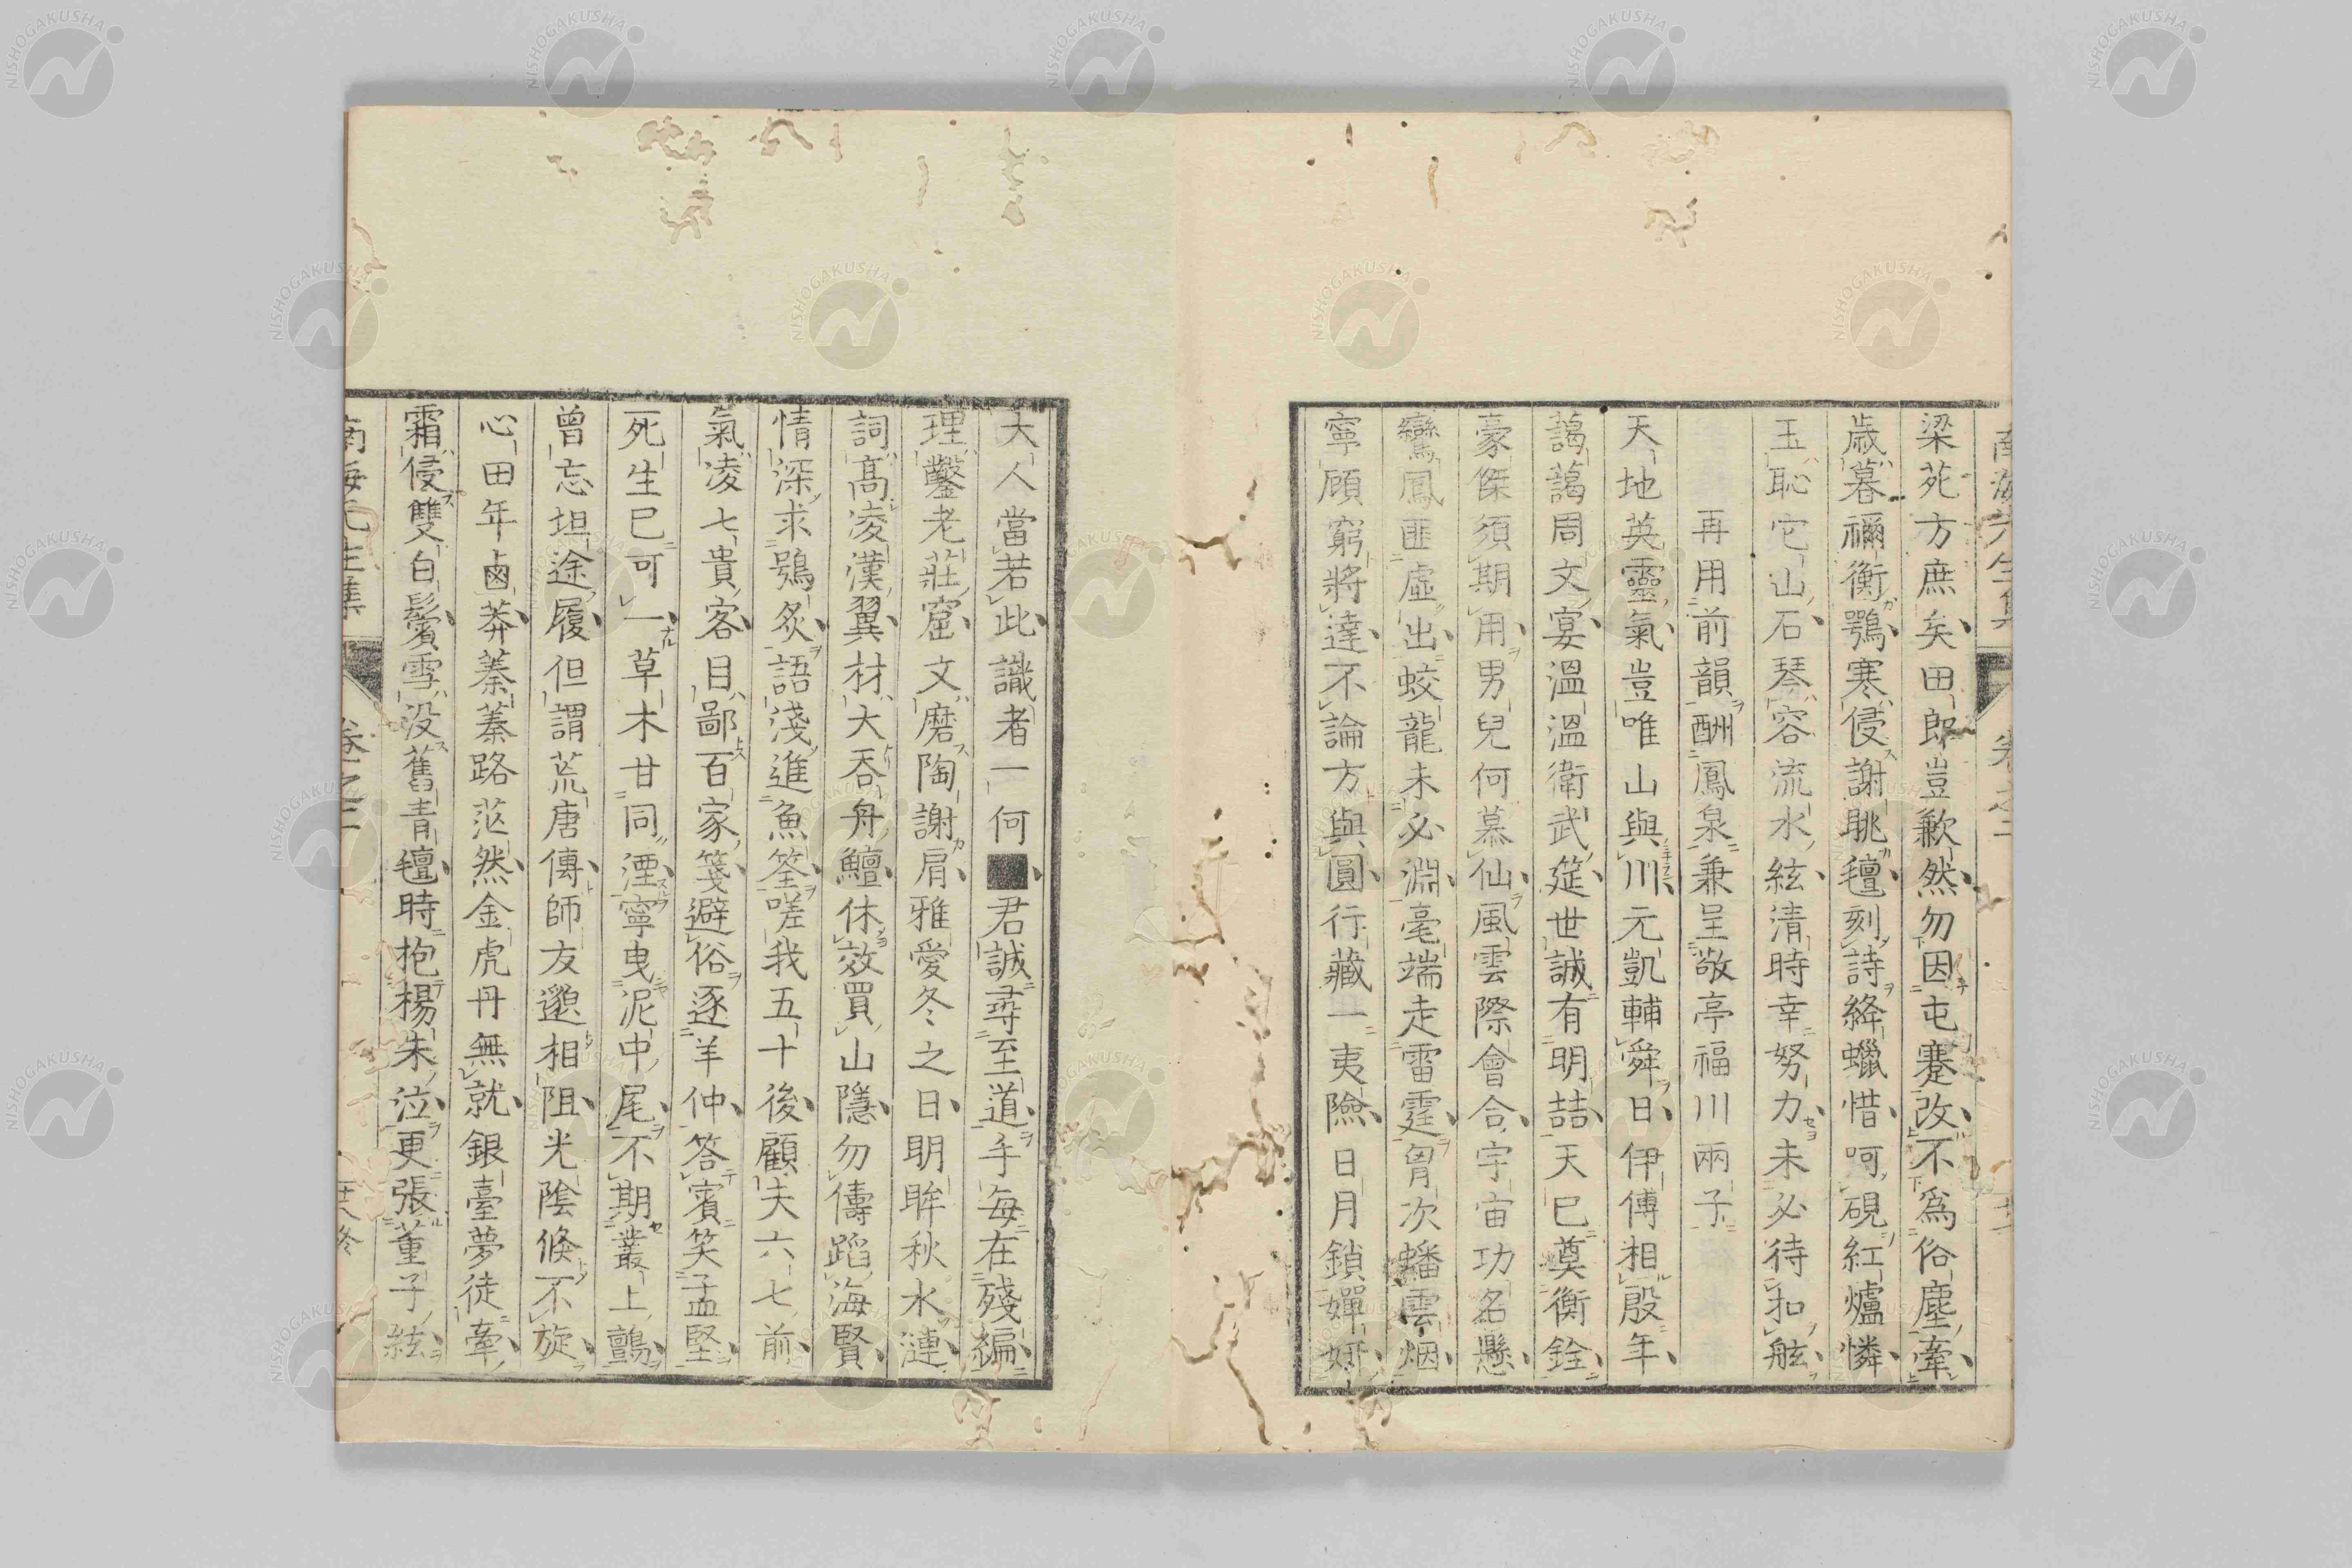 梁苑方庶矣田郎豈歉然勿因屯蹇改不爲俗塵牽
歳暮禰衡鶚寒侵謝眺氊刻詩絳蠟惜呵硯紅爐憐
玉恥它山石琴容流水絃清時幸努力未必待扣舷
再用前韻酬鳳泉兼呈敬亭福川兩子
天地英靈氣豈唯山與川元凱輔舜日伊傅相殷年
藹藹周文宴溫溫衛武筵世誠有明喆天巳奠衡銓
豪傑須期用男兒何慕仙風雲際會合宇宙功名懸
鸞鳳匪虛出蛟龍未必淵毫端走雷霆胷次蟠雲烟
寧顧窮將達不論方與圓行藏一夷險日月鎖嬋妍
大人當若此識者一何■君誠尋至道手每在殘編
理鑿老莊窟文磨陶謝肩雅愛冬之日明眸秋水漣
詞高凌漢翼材大呑舟鱣休效買山隱勿儔蹈海賢
情深求鴞炙語淺進魚筌嗟我五十後顧夫六七前
氣凌七貴客目鄙百家箋避俗逐羊仲答賓笑孟堅
死生巳可一草木甘同湮寧曳泥中尾不期叢上鸇
曾忘坦途履但謂荒唐傳師友邈相阻光陰倏不旋
心田年鹵莽蓁蓁路茫然金虎丹無就銀臺夢徒牽
霜侵雙白鬢雪没舊青氊時抱楊朱泣更張董子絃
南海先生集 卷之三